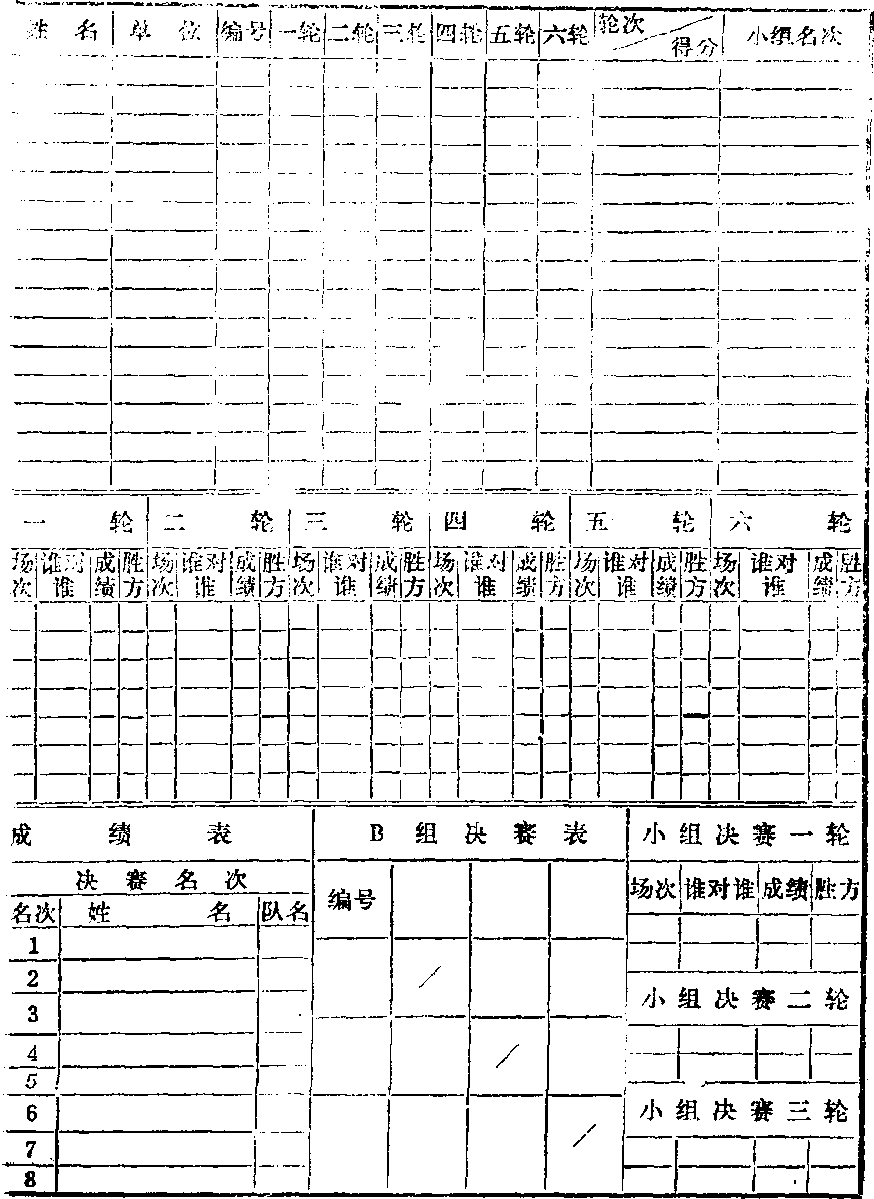 姓 名 单 位 编号 一轮 二轮 三轮 四轮 五轮 六轮 轮次 得分 小组名次
一 轮 二 轮 三 轮 四 轮 五 轮 六 轮
场次 谁对谁 成绩 胜方 场次 谁对谁 成绩 胜方 场次 谁对谁 成绩 胜方 场次 谁对谁 成绩 胜方 场次 谁对谁 成绩 胜方 场次 谁对谁 成绩 胜方
成 绩 表
决 赛 名 次
名次 姓 名 队名
1
2
3
4
5
6
7
8
B 组 决 赛 表
编号
小 组 决 赛 一 轮
场次 谁对谁 成绩 胜方
小 组 决 赛 二 轮
小 组 决 赛 三 轮